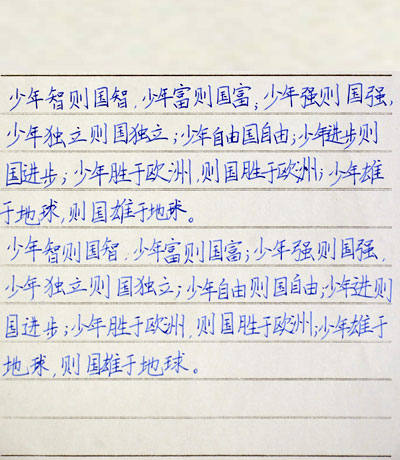 少年智则国智,少年富则国富;少年强则国强,
少年独立则国独立;少年自由国自由;少年进步则
国进步;少年胜于欧洲,则国胜于欧洲;少年雄
于地球,则国雄于地球。
少年智则国智,少年富则国富;少年强则国强,
少年独立则国独立;少年自由则国自由;少年进则
国进步;少年胜于欧洲,则国胜于欧洲;少年雄于
地球,则国雄于地球。